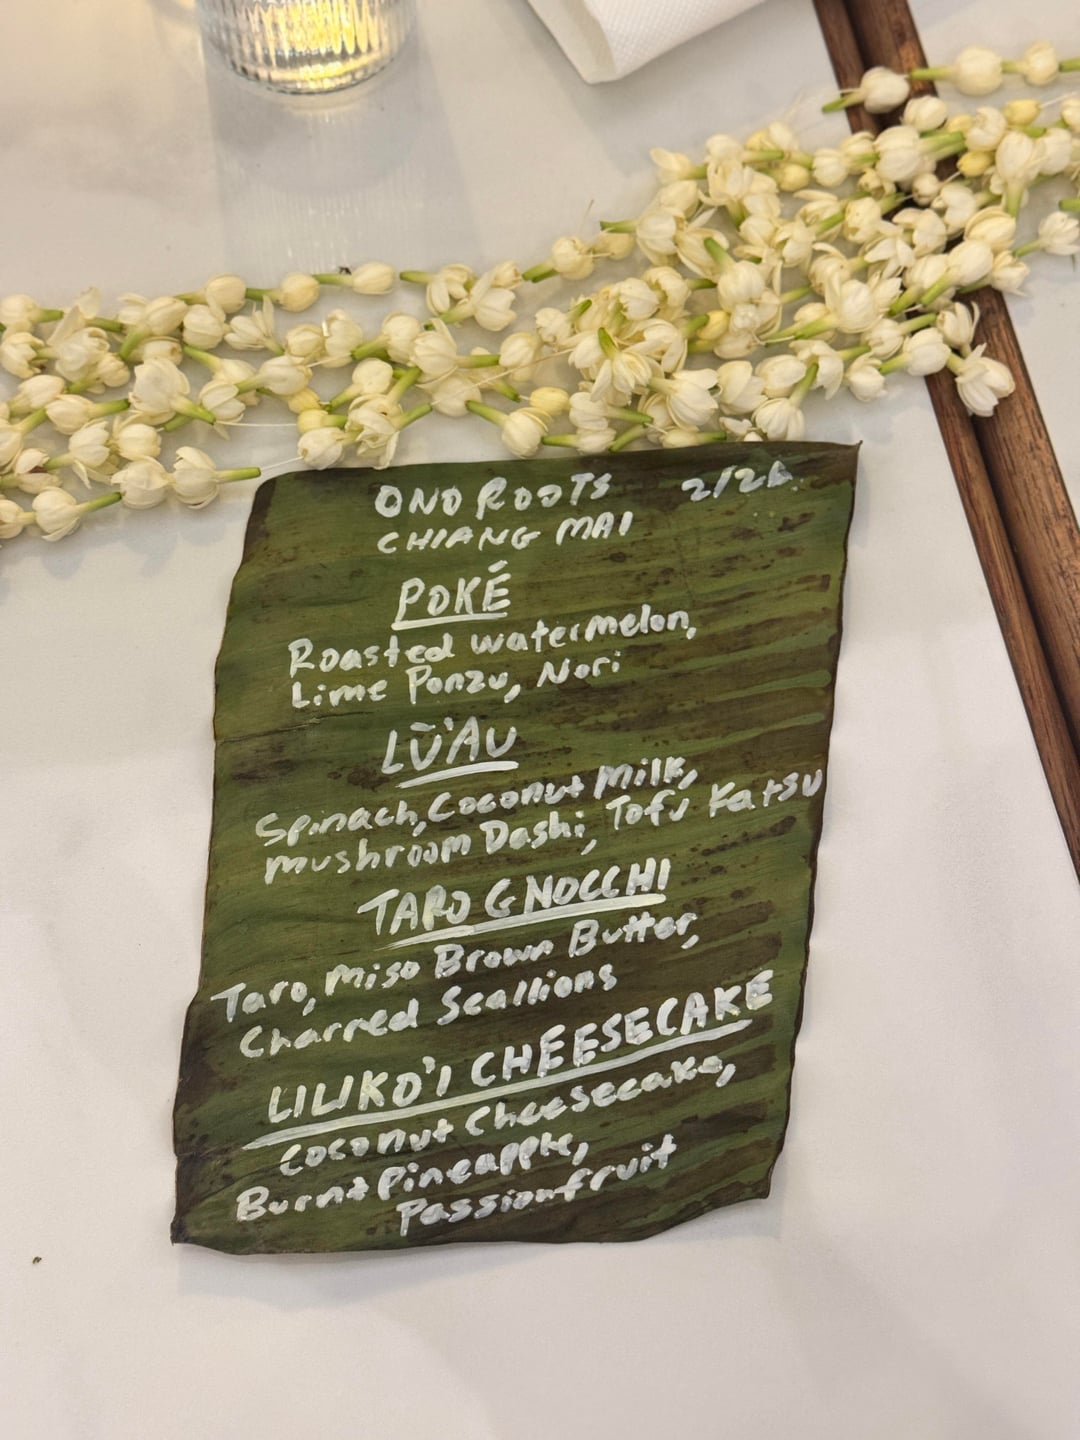 ONO ROOTS 2/26
CHIANG MAI
POKÉ
Roasted watermelon,
Lime Ponzu, Nori
LŪ'AU
Spinach, Coconut Milk,
mushroom Dashi, Tofu Katsu
TARO GNOCCHI
Taro, Miso Brown Butter,
Charred Scallions
LILIKO'I CHEESECAKE
Coconut Cheesecake,
Burnt Pineapple,
Passionfruit